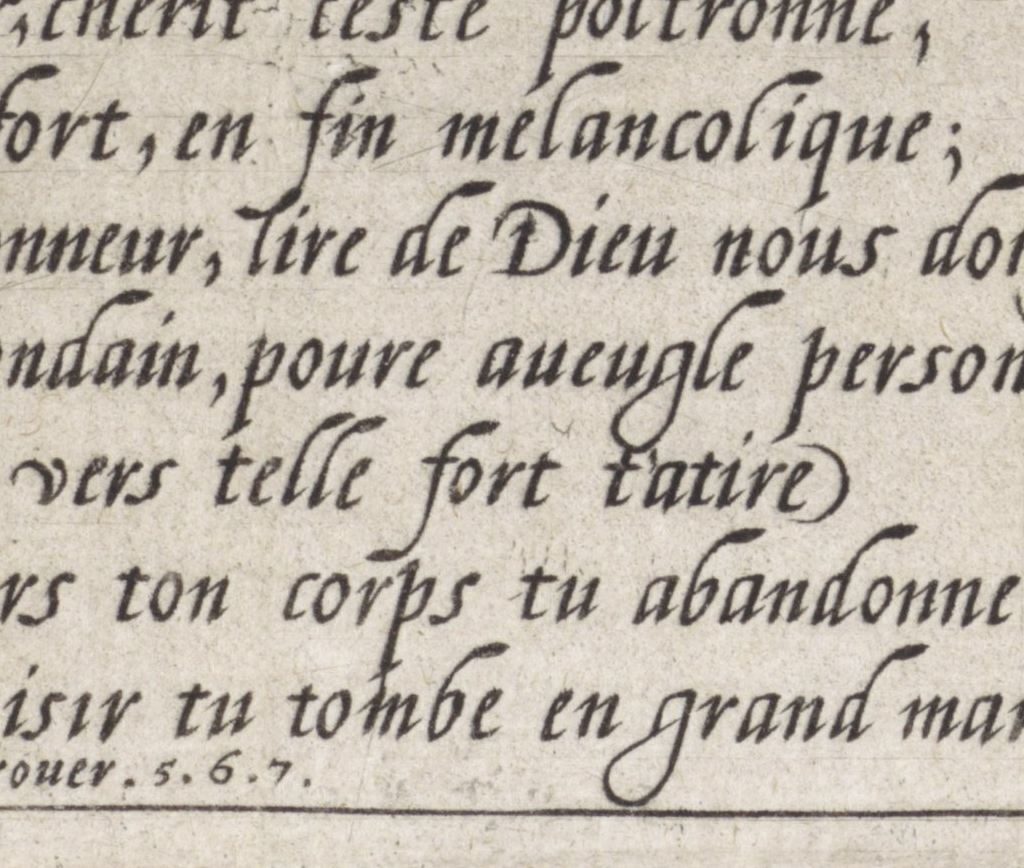 cherit ceste poltronne,
fort, en fin melancolique;
onneur, lire de Dieu nous don
ondain, poure aueugle person
vers telle fort t'atire)
rs ton corps tu abandonne
isir tu tombe en grand mar
rouer. 5. 6. 7.